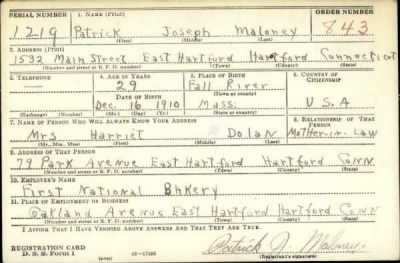 SERIAL NUMBER 1. NAME (Print) ORDER NUMBER
1219 Patrick Joseph Maloney 843
(First) (Middle) (Last)
2. ADDRESS (Print)
1532 Main Street East Hartford Hartford Connecticut
(Number and street or R. F. D. number) (Town) (County) (State)
3. TELEPHONE 4. AGE IN YEARS 5. PLACE OF BIRTH 6. COUNTRY OF CITIZENSHIP
— 29 Fall River
DATE OF BIRTH (Town or county)
Dec. 16 1910 Mass. U.S.A
(Exchange) (Number) (Mo.) (Day) (Yr.) (State or country)
7. NAME OF PERSON WHO WILL ALWAYS KNOW YOUR ADDRESS 8. RELATIONSHIP OF THAT PERSON
Mrs Harriet Dolan Mother-in-Law
(Mr., Mrs., Miss) (First) (Middle) (Last)
9. ADDRESS OF THAT PERSON
79 Park Avenue East Hartford Hartford Conn
(Number and street or R. F. D. number) (Town) (County) (State)
10. EMPLOYER'S NAME
First National Bakery
11. PLACE OF EMPLOYMENT OR BUSINESS
Oakland Avenue East Hartford Hartford Conn
(Number and street or R. F. D. number) (Town) (County) (State)
I AFFIRM THAT I HAVE VERIFIED ABOVE ANSWERS AND THAT THEY ARE TRUE.
REGISTRATION CARD
D. S. S. Form 1 (over) 16—17105 Patrick J. Maloney
(Registrant's signature)